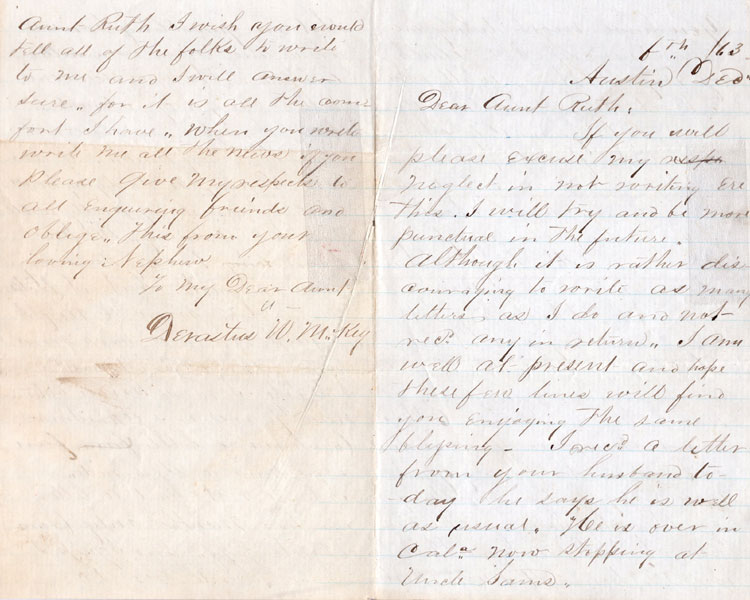 6th /63
Austin Dec.
Dear Aunt Ruth:
If you will
please excuse my
neglect in not writing ere
this. I will try and be more
punctual in the future.
Although it is rather dis
couraging to write as many
letters, as I do and not
recd any in return. I am
well at present and hope
these few lines will find
you enjoying the same
blessing - I recd a letter
from your husband to-
day he says he is well
as usual. He is over in
Cala now stopping at
Uncle Sams.
Aunt Ruth I wish you would
tell all of the folks to write
to me and I will answer
sure, for it is all the com
fort I have, when you write
write me all the news if you
Please Give My respects to
all enquiring friends and
oblige, this from your
loving Nephew
To My Dear Aunt
W. McKey